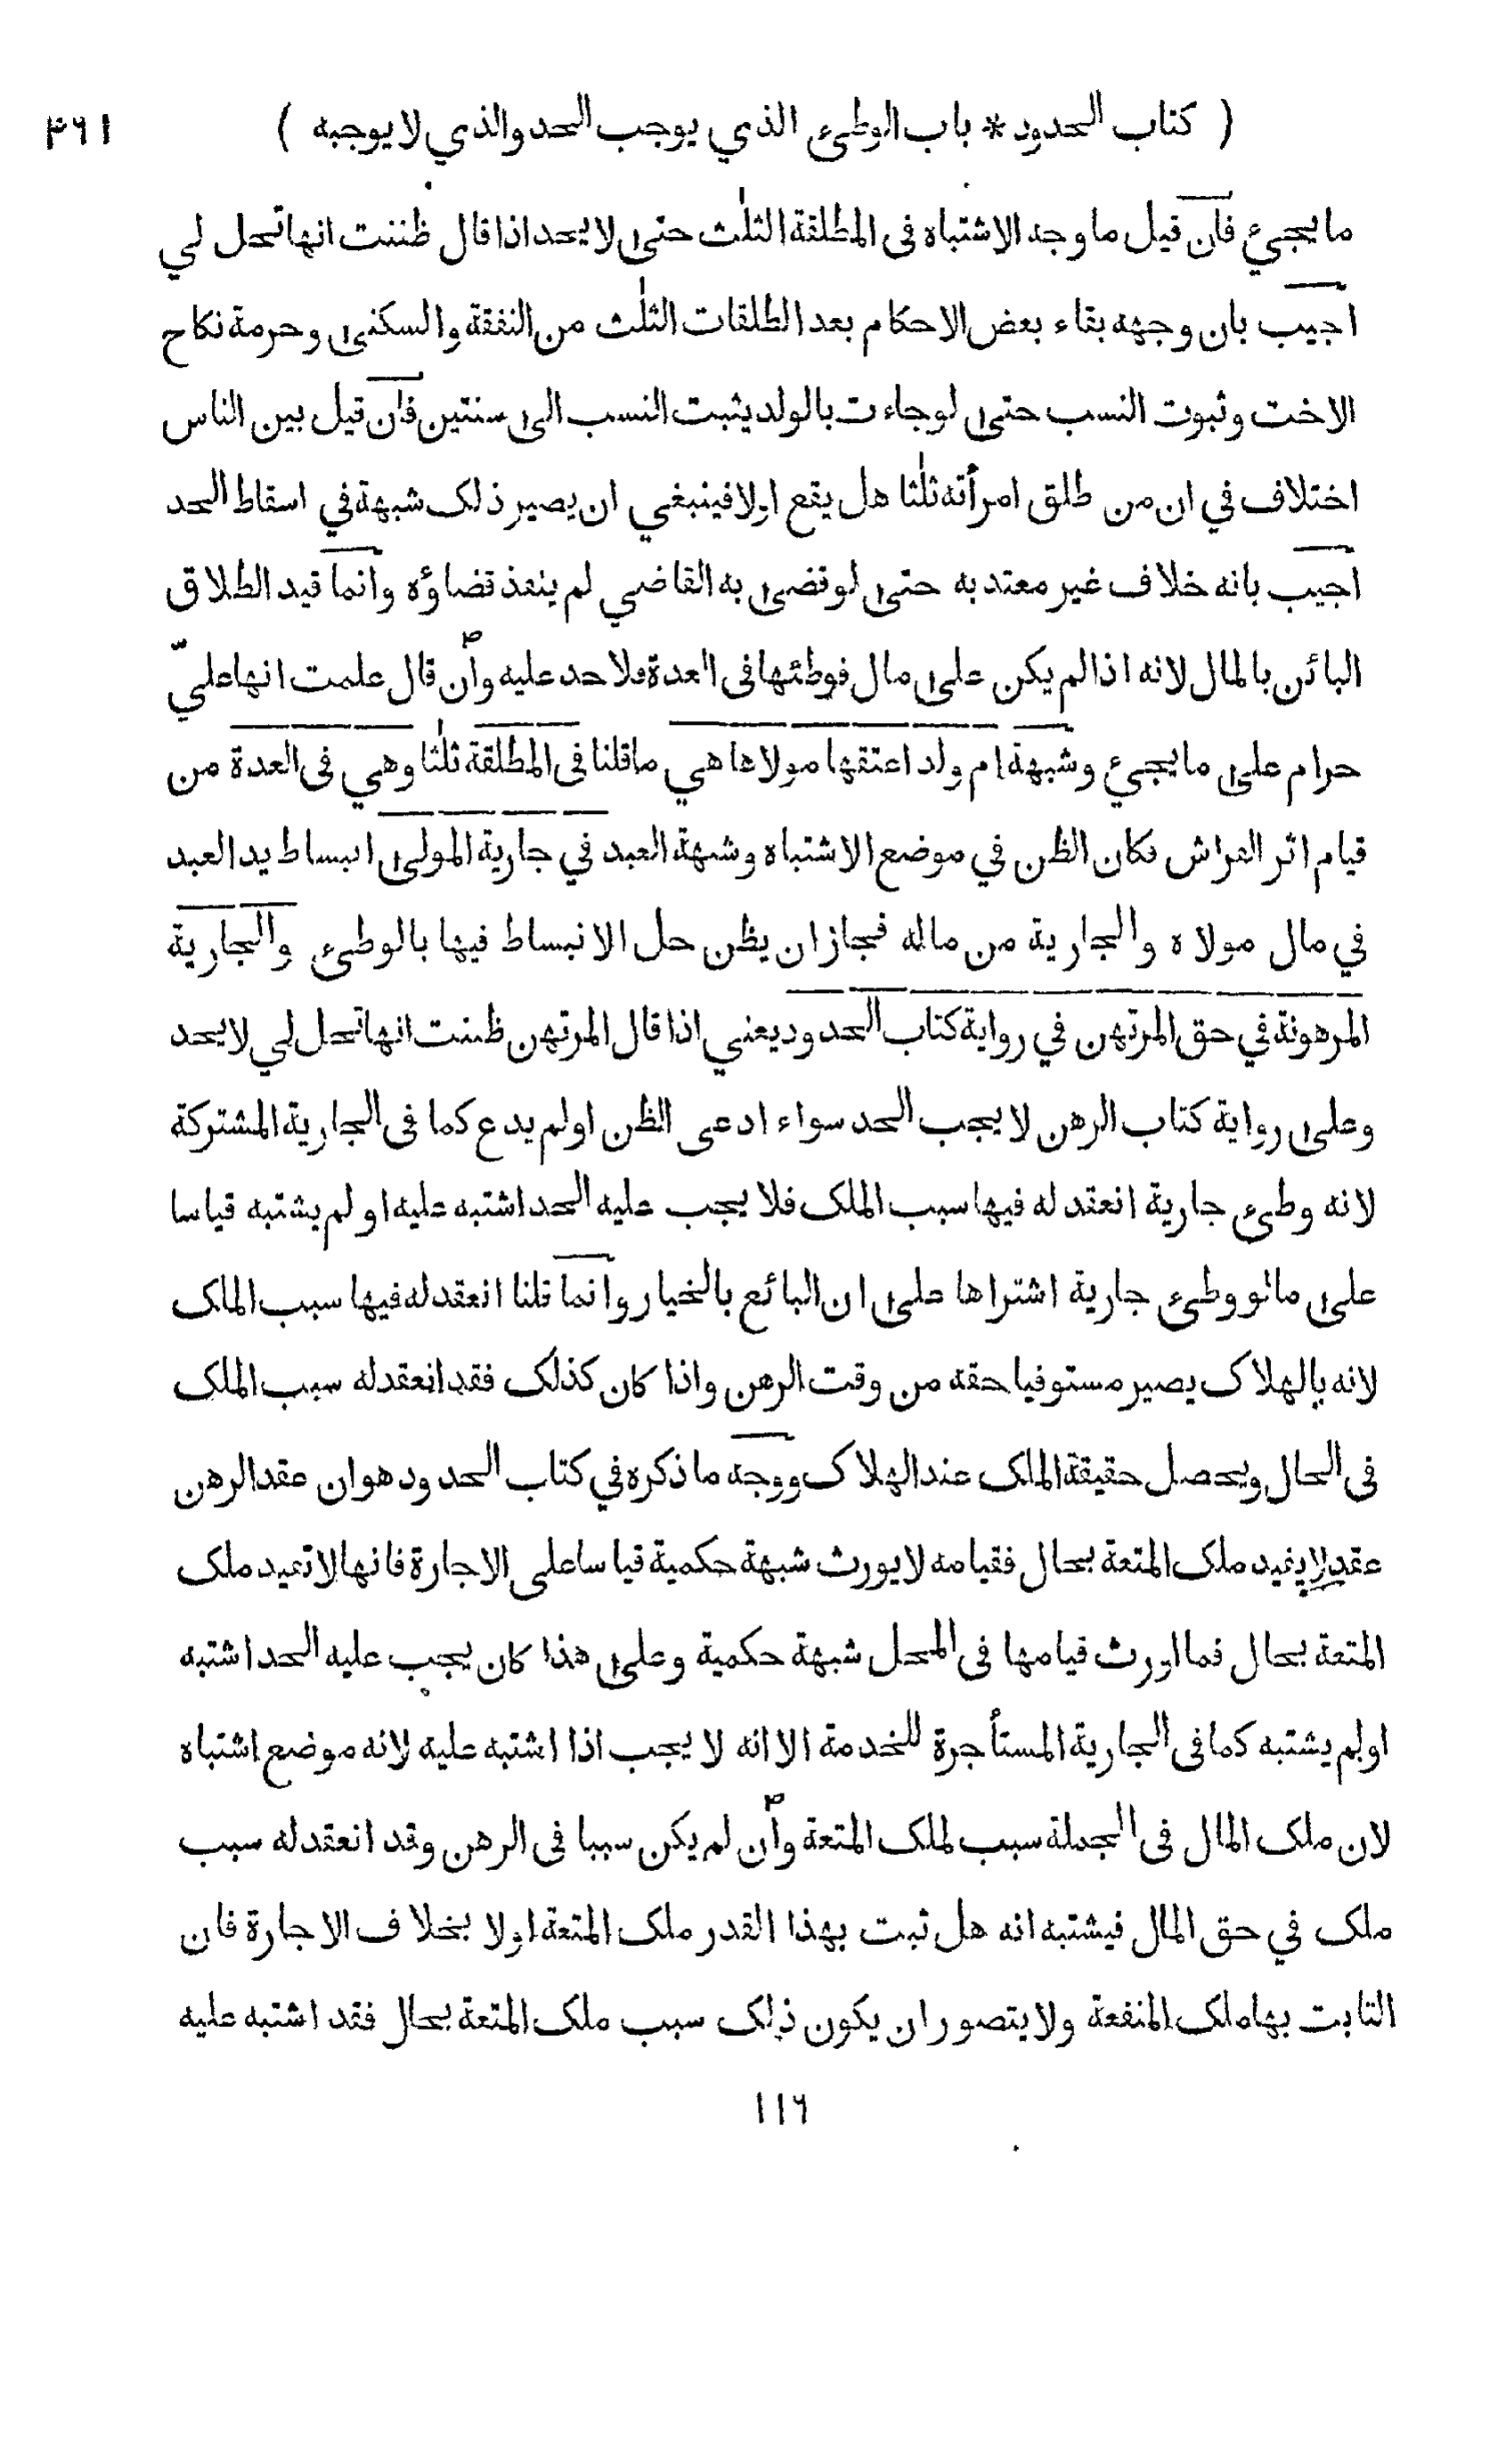 ( كتاب الحدود * باب الوطىء الذي يوجب الحد والذي لا يوجبه ) ٣٦١
ما يجيء فان قيل ما وجه الاشتباه فى المطلقة الثلٰث حتى لا يحد اذا قال ظننت انها تحل لي
اجيب بان وجهه بقاء بعض الاحكام بعد الطلقات الثلٰث من النفقة والسكنى وحرمة نكاح
الاخت وثبوت النسب حتى لو جاءت بالولد يثبت النسب الى سنتين فان قيل بين الناس
اختلاف في ان من طلق امرأته ثلٰثا هل يقع اولا فينبغي ان يصير ذلک شبهة في اسقاط الحد
اجيب بانه خلاف غير معتد به حتى لو قضى به القاضي لم ينفذ قضاؤه وانما قيد الطلاق
البائن بالمال لانه اذا لم يكن على مال فوطئها فى العدة فلا حد عليه وان قال علمت انها عليّ
حرام على ما يجيء وشبهة ام ولد اعتقها مولاها هي ما قلنا فى المطلقة ثلٰثا وهي فى العدة من
قيام اثر الفراش فكان الظن في موضع الاشتباه وشبهة العبد في جارية المولى انبساط يد العبد
في مال مولاه والجارية من ماله فجاز ان يظن حل الانبساط فيها بالوطىء والجارية
المرهونة في حق المرتهن في رواية كتاب الحدود يعني اذا قال المرتهن ظننت انها تحل لي لا يحد
وعلى رواية كتاب الرهن لا يجب الحد سواء ادعى الظن اولم يدع كما فى الجارية المشتركة
لانه وطىء جارية انعقد له فيها سبب الملک فلا يجب عليه الحد اشتبه عليه او لم يشتبه قياسا
على ما لو وطىء جارية اشتراها على ان البائع بالخيار وانما قلنا انعقد له فيها سبب الملک
لانه بالهلاک يصير مستوفيا حقه من وقت الرهن واذا كان كذلک فقد انعقد له سبب الملک
فى الحال ويحصل حقيقة الملک عند الهلاک ووجه ما ذكره في كتاب الحدود هو ان عقد الرهن
عقد لا يفيد ملک المتعة بحال فقيامه لا يورث شبهة حكمية قياسا على الاجارة فانها لا تفيد ملک
المتعة بحال فما اورث قيامها فى المحل شبهة حكمية وعلى هذا كان يجب عليه الحد اشتبه
اولم يشتبه كما فى الجارية المستأجرة للخدمة الا انه لا يجب اذا اشتبه عليه لانه موضع اشتباه
لان ملک المال فى الجملة سبب لملک المتعة وان لم يكن سببا فى الرهن وقد انعقد له سبب
ملک في حق المال فيشتبه انه هل ثبت بهذا القدر ملک المتعة اولا بخلاف الاجارة فان
الثابت بها ملک المنفعة ولا يتصور ان يكون ذلک سبب ملک المتعة بحال فقد اشتبه عليه
١١٦